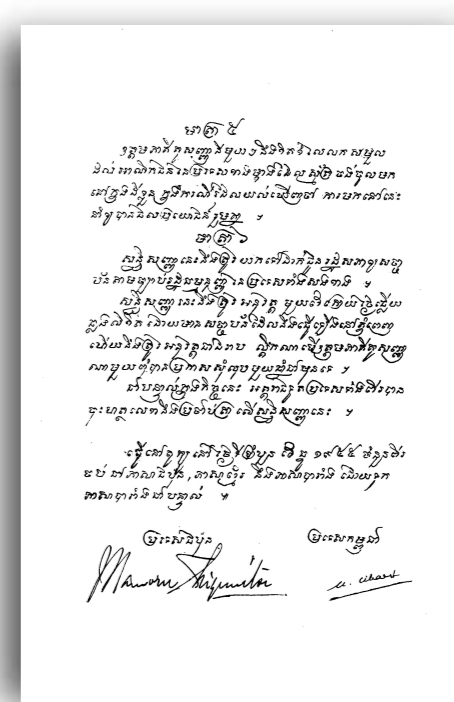 មាត្រា ៥
ឧត្តមភាគីគូសញ្ញានីមួយៗនឹងខិតខំលៃលកសម្រួល
ដល់ពាណិជជននៃប្រទេសម្ខាងទៀតដែលស្ម័គ្រចង់ចូលមក
នៅក្នុងដីខ្លួន ក្នុងករណីដែលយល់ឃើញថា ការមកនៅនេះ
នាំឲ្យបានផលប្រយោជន៍រួមគ្នា ។
មាត្រា ៦
ស្នធិសញ្ញានេះនឹងត្រូវយកទៅ
តាមច្បាប់រដ្ឋធម្មនុញ្ញនៃប្រទេសទាំងសងខាង ។
ស្នធិសញ្ញានេះនឹងត្រូវអនុវត្ត មួយខែក្រោយថ្ងៃផ្លើយ
ឆ្លងលិខិត ដោយមានសច្ចាប័នដែលនឹងធ្វើឡើងនៅភ្នំពេញ
ហើយនឹងត្រូវអនុវត្តជានិរាប ល្គឹកណាបើឧត្តមភាគីគូសញ្ញា
ណាមួយពុំបានប្រកាសសុំលុបមួយឆ្នាំជាមុនទេ ។
ជាបន្ទាល់ក្នុងកិច្ចនេះ អគ្គរាជទូតប្រទេសទាំងពីរបាន
ចុះហត្ថលេខានិងប្រថាប់ត្រាលើស្នធិសញ្ញានេះ ។
ធ្វើនៅតូក្យូ នៅថ្ងៃទី ៩ ខែធ្នូ ១៩៥៥ ចំនួនពីរ
ច្បាប់ ជាភាសាជប៉ុន, ភាសាខ្មែរ និងភាសាបារាំង ដោយទុក
ភាសាបារាំងជាបន្ទាល់ ៕
ប្រទេសជប៉ុន ប្រទេសកម្ពុជា
Mamoru Shigemitsu